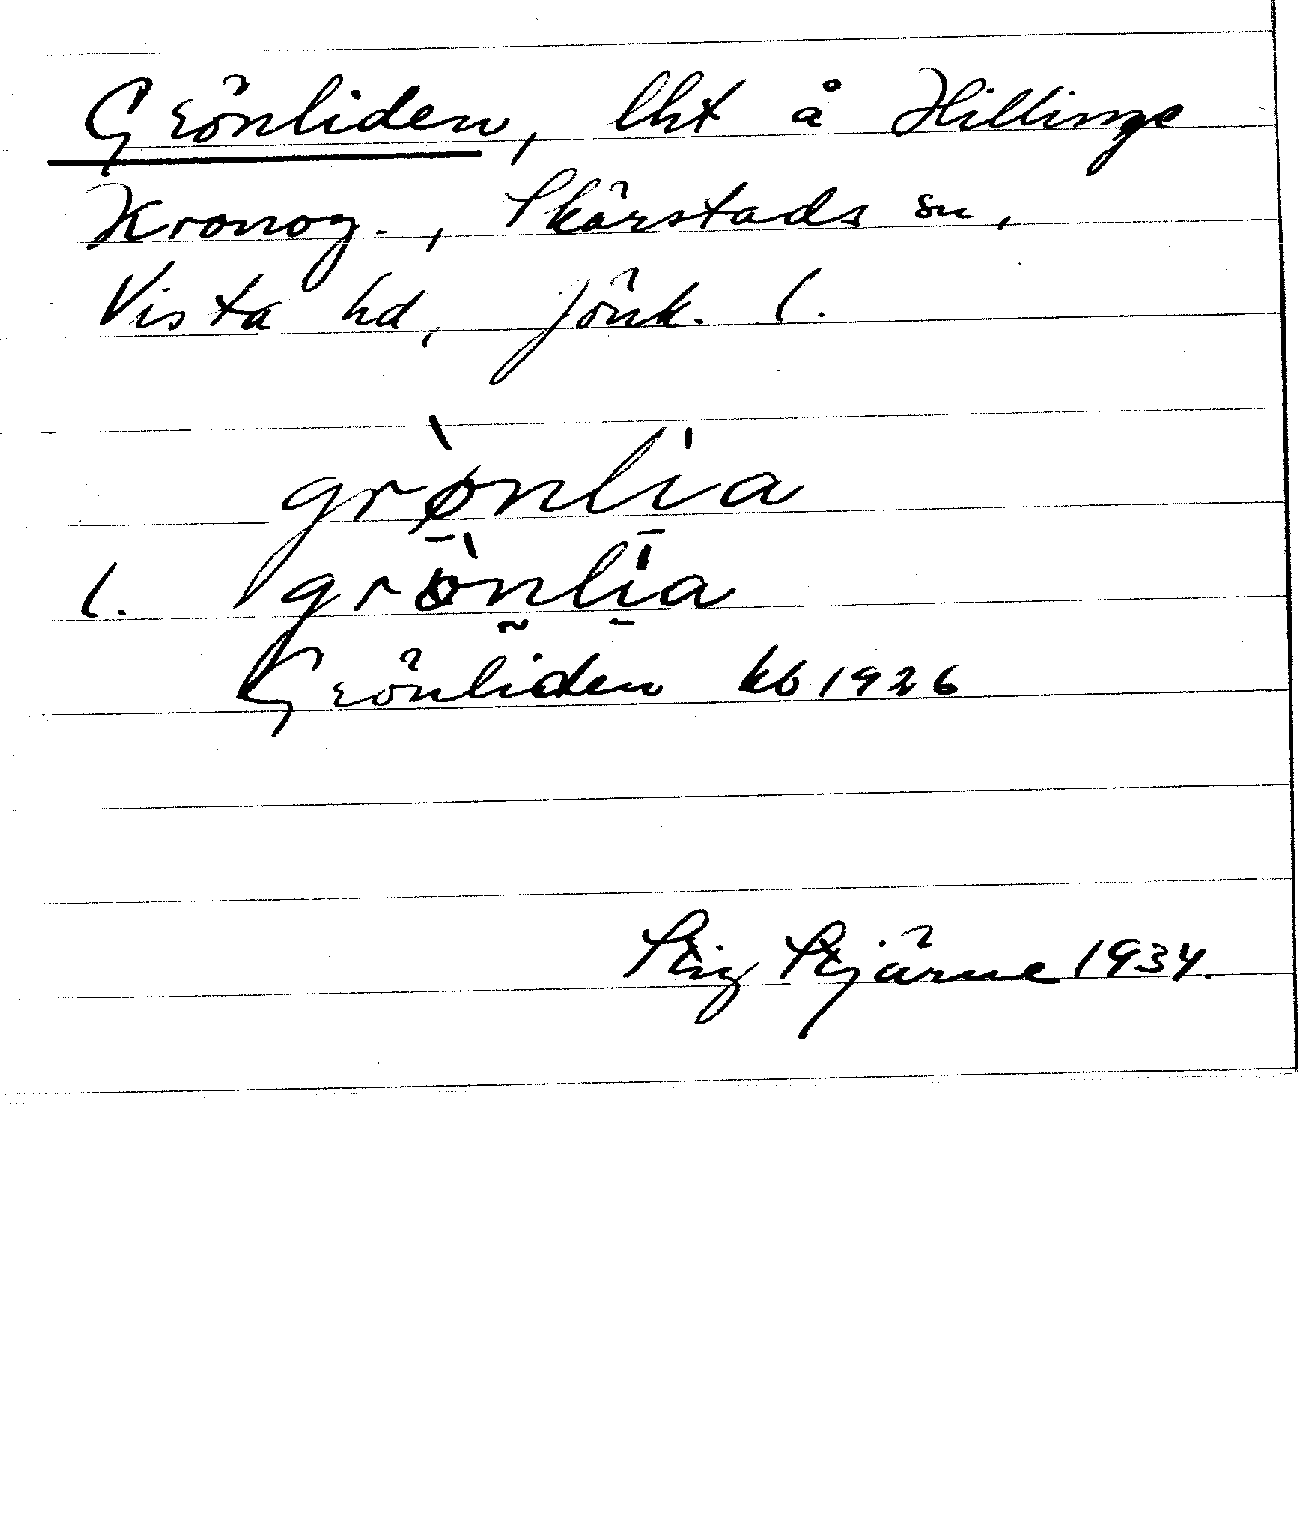 Grönliden, lht å Hillinge
Kronog., Skärstads sn,
Vista hd, Jönk. l.
grø̀nlia
l. grö̀nlia
Grönliden kb 1926
Stig Stjärne 1934.